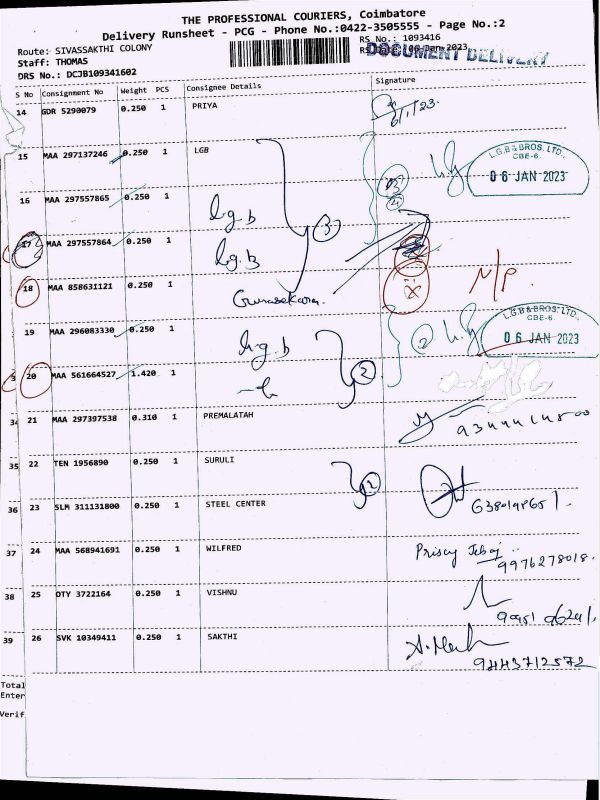 THE PROFESSIONAL COURIERS, Coimbatore
Delivery Runsheet - PCG - Phone No.:0422-3505555 - Page No.:2
Route: SIVASSAKTHI COLONY
RS No.: 1093416
Staff: THOMAS
06-Jan-2023
DOCUMENT DELIVERY
DRS No.: DCJB109341602
S No Consignment No Weight PCS Consignee Details Signature
14 GDR 5290079 0.250 1 PRIYA
15 MAA 297137246 0.250 1 LGB
L.G.B & BROS. LTD.,
CBE-6.
06 JAN 2023
16 MAA 297557865 0.250 1
lg.b
3
17 MAA 297557864 0.250 1
lg.b
18 MAA 858631121 0.250 1
Gunasekaran
x
N/P.
L.G.B & BROS. LTD.,
CBE-6.
19 MAA 296083330 0.250 1
lg.b
2
06 JAN 2023
20 MAA 561664527 1.420 1
2
34 21 MAA 297397538 0.310 1 PREMALATAH
35 22 TEN 1956890 0.250 1 SURULI
2
36 23 SLM 311131800 0.250 1 STEEL CENTER
37 24 MAA 568941691 0.250 1 WILFRED
9976278018.
38 25 OTY 3722164 0.250 1 VISHNU
39 26 SVK 10349411 0.250 1 SAKTHI
9443712572
Total
Enter
Verif